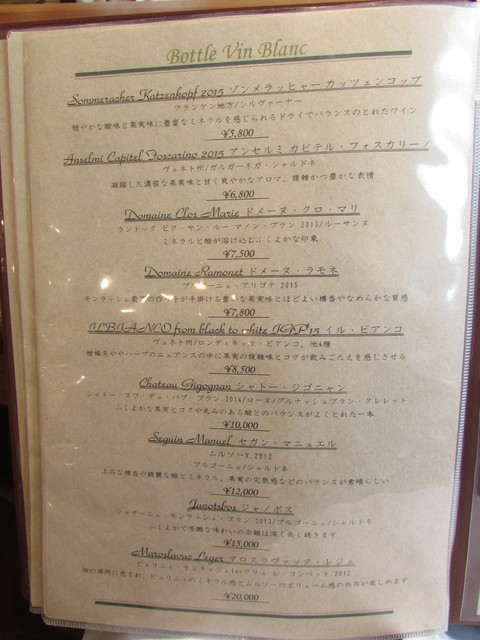 Bottle Vin Blanc
Sommeracher Katzenkopf 2015 ゾンメラッヒャー カッツェンコップ
フランケン地方/シルヴァーナー
穏やかな酸味と果実味に豊富なミネラルを感じられるドライでバランスのとれたワイン
¥5,800
Anselmi Capitel Foscarino 2015 アンセルミ カピテル・フォスカリーノ
ヴェネト州/ガルガーネガ・シャルドネ
凝縮した濃密な果実味と甘く爽やかなアロマ、複雑かつ豊かな表情
¥6,800
Domaine Clos Marie ドメーヌ・クロ・マリ
ラングドック ピク・サン・ルー マノン・ブラン 2015/ルーサンヌ
ミネラルと酸が溶け込むふくよかな印象
¥7,500
Domaine Ramonet ドメーヌ・ラモネ
ブルゴーニュ・アリゴテ 2015
モンラッシェ最 の作 が手掛ける豊 な果実味とほどよい樽香やなめらかな質感
¥7,800
IL BIANCO from black to white IGP 15 イル・ビアンコ
ヴェネト州/ロンディネッラ・ビアンコ、他4種
柑橘系ややハーブのニュアンスの中に果実の複雑味とコクが飲みごたえを感じさせる
¥8,500
Chateau Gigognan シャトー・ジゴニャン
シャトー・ヌフ・デュ・パプ・ブラン 2014/ローヌ/グルナッシュブラン・クレレット
ふくよかな果実とコクや丸みのある酸とのバランスがよくとれた一本
¥10,000
Seguin Manuel セガン・マニュエル
ムルソーV.2012
ブルゴーニュ/シャルドネ
上品な樽香や綺麗な酸とミネラル、果実の完熟感などのバランスが素晴らしい
¥12,000
Janotsbos ジャノボス
シャサーニュ・モンラッシェ・ブラン 2013/ブルゴーニュ/シャルドネ
ふくよかで芳醇な味わいの余韻は深く長く続きます
¥15,000
Maroslavac Leger マロスラヴァック・レジェ
ピュリニィ・モンラッシェ1erフリェ レ・コンベット 2012
畑の場所に恵まれ、ピュリニィのミネラル感とムルソーのボリューム感の共存が楽しめます
¥20,000